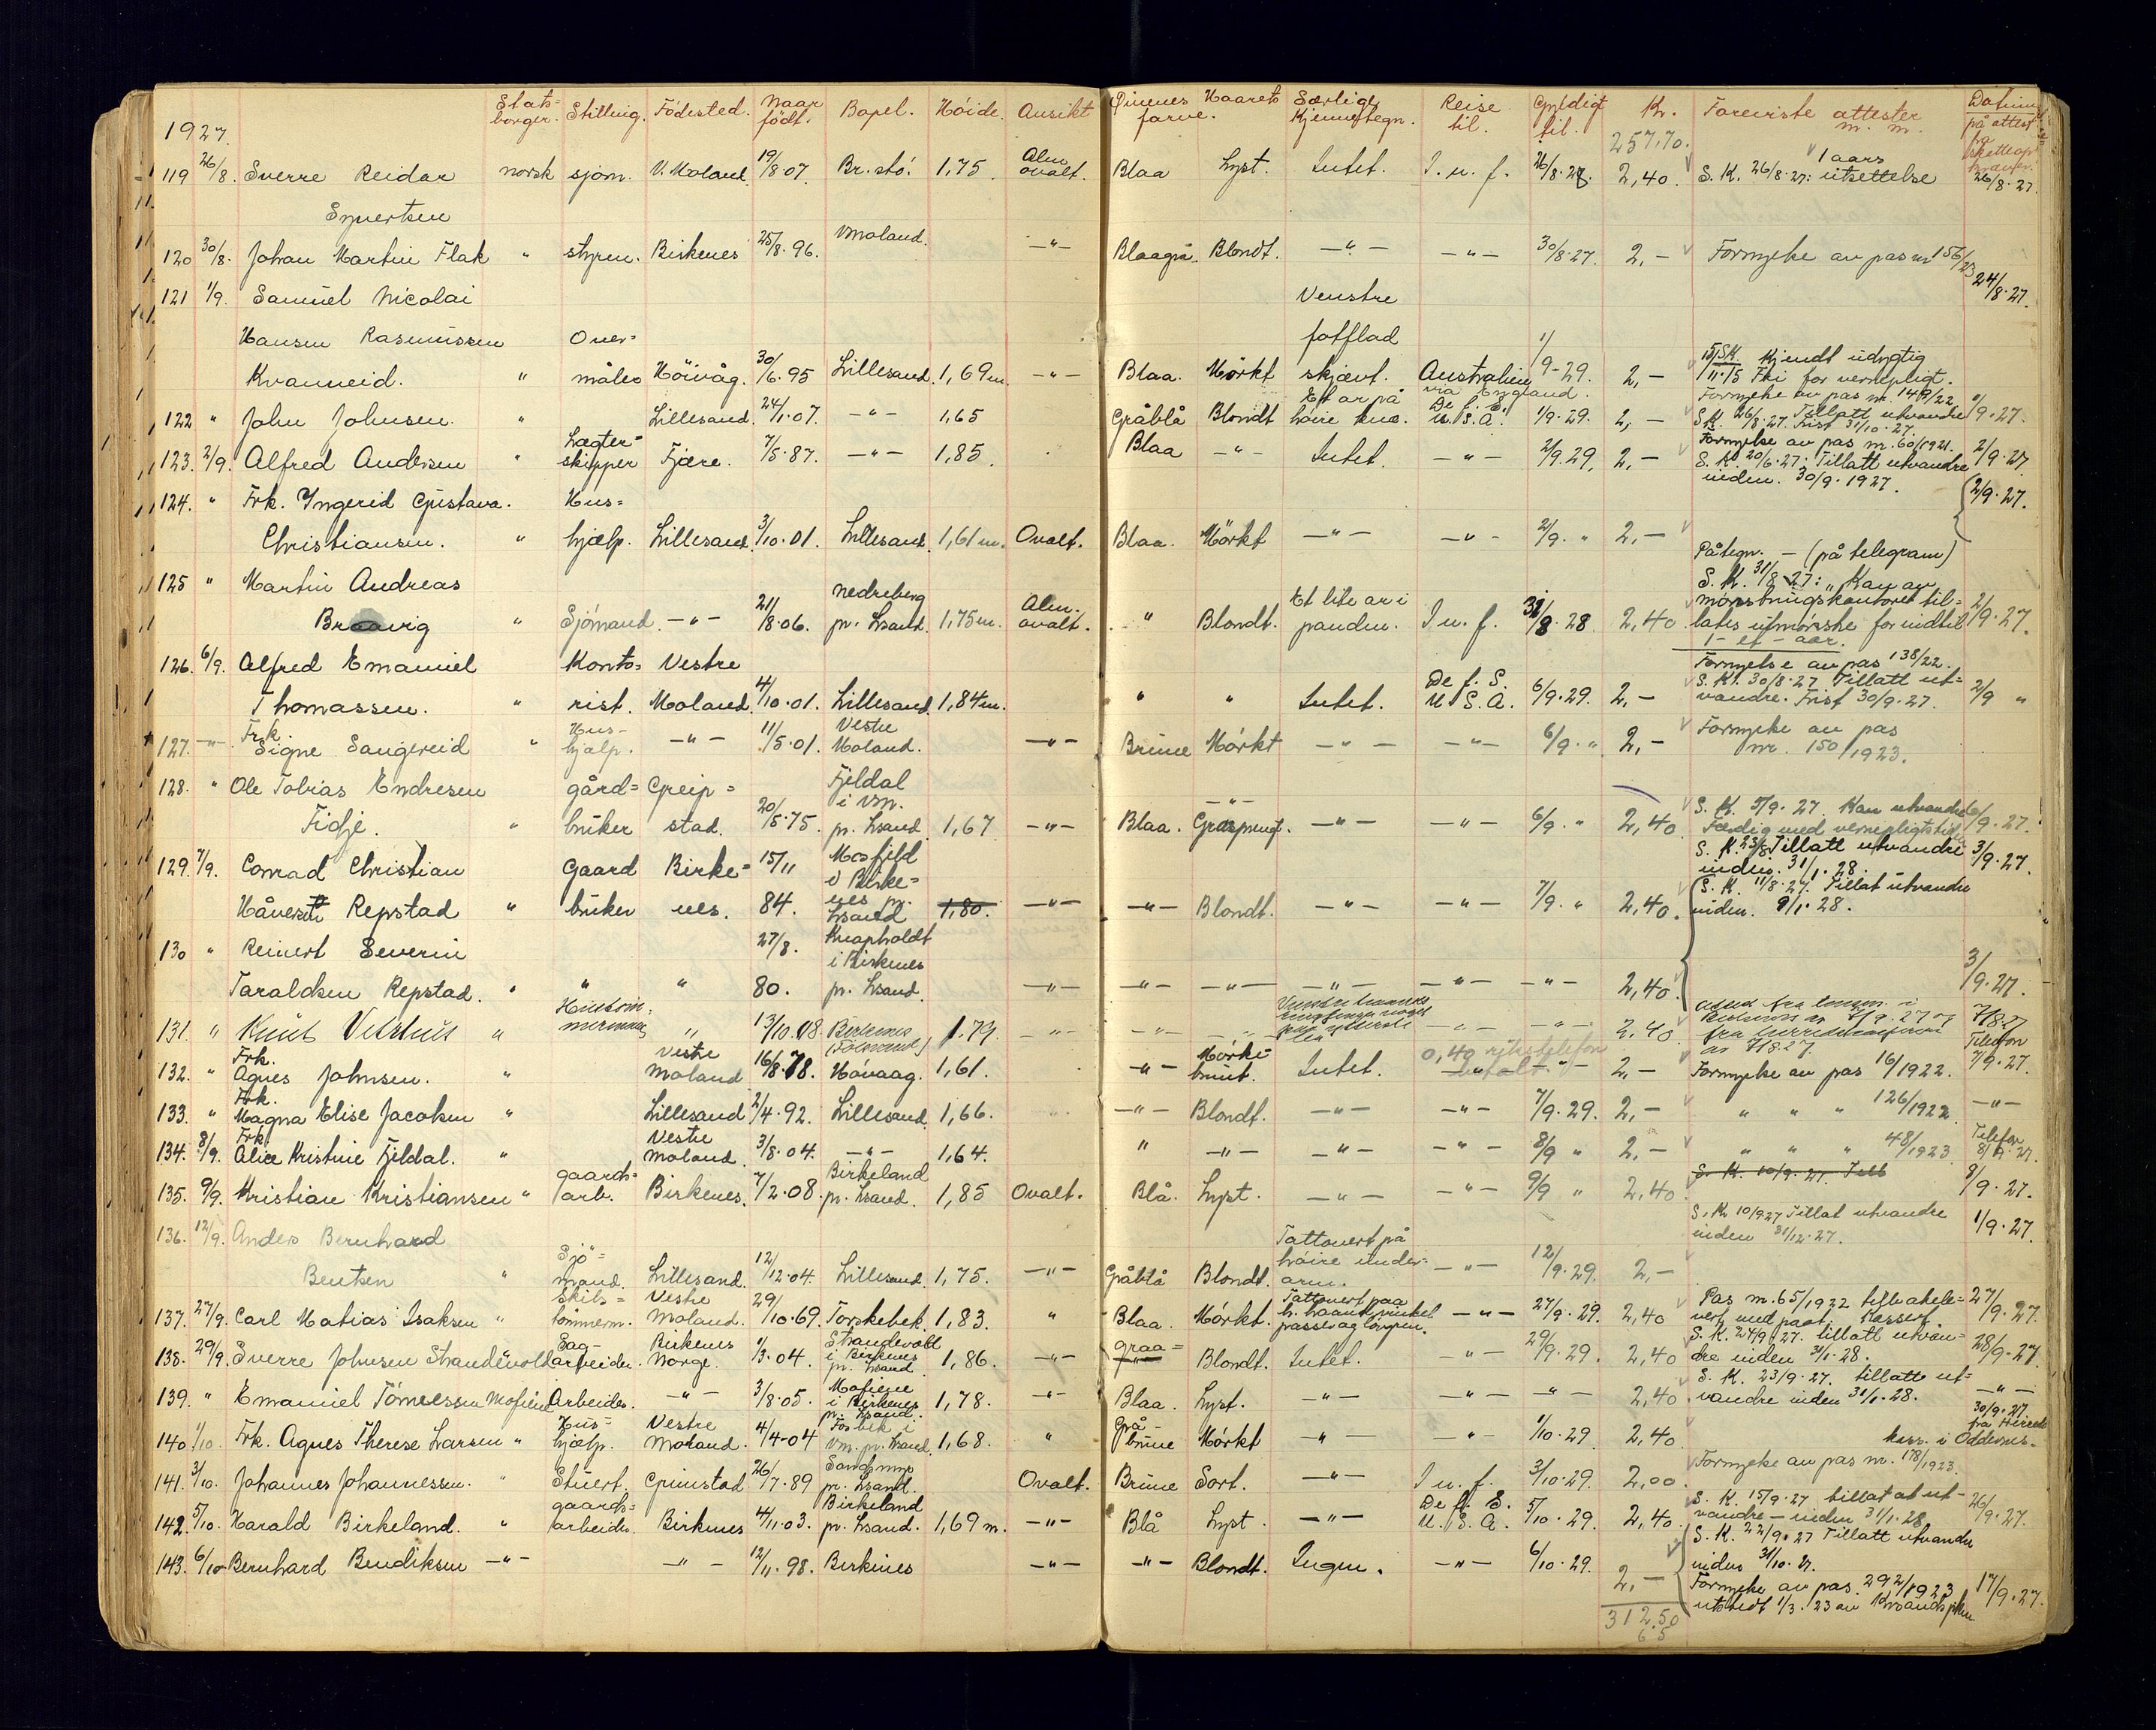 1927.
Stats-borger. Stilling. Födested. Naar födt. Bopel. Höide. Ansikt Öinenes farve. Haarets Særlige Kjennetegn. Reise til. Gyldigt til. Kr. Foreviste attester m. m. Datum på attest
257,70.
119 26/8. Sverre Reidar norsk sjöm. V. Moland. 19/8.07. Br. stö. 1,75. Alm. ovalt. Blaa Lyst. Intet. I. u. f. 26/8.28. 2,40. S. K. 26/8.27: 1 aars utsettelse 26/8.27.
Syvertsen
120 30/8. Johan Martin Flak " styrm. Birkenes 25/8.96. V moland. —"— Blaagrå Blondt. —"— —"— 30/8.27. 2,— Fornyelse av pas nr 156/23 24/8.27.
121 1/9. Samuel Nicolai Venstre
Hansen Rasmussen Over= fotflad
Kvanneid. " måler Höivåg. 30/6.95 Lillesand. 1,69 m. —"— Blaa. Mörkt skjævt. Australien via England. 1/9-29. 2,— 15/11.15 S.K. Kjendt udygtig Fri for vernepligt. Fornyelse av pas nr. 149/22
122 " John Johnsen. " Lillesand. 24/1.07. —"— 1,65 Gråblå Blondt Et ar på höire kne. De f. S. U.S.A. 1/9.29. 2,— S.K. 26/8.27. Tillatt utvandre Frist 31/10.27. 1/9.27.
123. 2/9. Alfred Andersen " Lægter=skipper Fjære. 7/5.87. —"— 1,85. Blaa —"— Intet. —"— 2/9.29. 2,— Fornyelse av pas nr. 60/1921. S. K. 20/6.27. Tillatt utvandre inden. 30/9.1927. 2/9.27
124. " Frk. Ingerid Gustava. Hus= 2/9.27.
Christiansen. " hjælp. Lillesand. 3/10.01. Lillesand. 1,61 m. Ovalt. Blaa. Mörkt —"— —"— 2/9. " 2,—
125 " Martin Andreas nedreberg Påtegn. — (på telegram)
Braavig " Sjömand. —"— 21/8.06. pr. Lsand. 1,75 m. Alm. ovalt. " Blondt. Et lite ar i panden. I u. f. 31/8.28 2,40 S. K. 31/8.27: "Kan av mönstringskontoret til=lates utmönstre for indtil 1 - et - aar. 2/9.27.
126. 6/9. Alfred Emanuel Konto= Vestre Fornyelse av pas 138/22.
Thomassen. " rist. Moland. 4/10.01. Lillesand. 1,84 m. " " Intet. De f. S. U S. A. 6/9.29. 2,— S. K. 30/8.27. Tillatt ut=vandre. Frist 30/9.27. 2/9 "
127. —"— Frk. Signe Sangereid " Hus-hjælp. —"— 11/5.01. Vestre Moland. —"— Brune Mörkt —"— —"— 6/9. " 2,— Fornyelse av pas nr. 150/1923.
128. " Ole Tobias Endresen gård= Greip= Fjeldal i Vm.
Tidje. " bruker stad. 20/8.75. pr. Lsand. 1,67 —"— Blaa. —"— Gråsprengt. —"— —"— 6/9. " 2,40. S. K. 5/9.27. Kan utvandre Færdig med vernepligtstid 6/9.27.
129. 7/9. Conrad Christian Gaard Birke= 15/11 Mosfjeld i Birke= S. K. 23/8 Tillatt utvandre inden. 31/1.28. 3/9.27.
Håvesen Repstad " bruker nes. 84. nes pr. Lsand 1,80. —"— —"— Blondt. —"— —"— 7/9. " 2,40. S. K. 11/8.27. Tillat utvandre inden. 9/1.28.
130 " Reinert Severin 27/8. Knapholdt i Birkenes
Taraldsen Repstad. " " " 80. pr. Lsand. —"— —"— —"— —"— —"— —"— 2,40. 3/9.27.
131. " Knut " " 13/10.08 Birkenes 1.79. —"— —"— " —"— —"— 2,40.
132. " Frk. Agnes Johnsen. " Vestre Moland 16/8.78. Hövaag. 1,61. —"— Mörke-brunt. Intet. 0,40 rikstelefon —"— 2,— Fornyelse av pas 16/1922. Telefon 7/9.27.
133. " Frk. Magna Elise Jacobsen " Lillesand 2/4.92. Lillesand. 1,66. —"— Blondt. —"— —"— 7/9.29. 2,— " " " 126/1922 —"—
134. 8/9. Frk. Alice Kristine Fjeldal. " Vestre Moland. 3/8.04. —"— 1,64. " —"— —"— —"— 8/9 " 2,— " " " 48/1923 Telefon 8/9.27.
135. 9/9. Kristian Kristiansen " gaards=arb. Birkenes. 7/2.08. Birkeland pr. Lsand. 1,85 Ovalt. Blå. Lyst. —"— —"— 9/9 " 2,40. S. K. 10/9.27. Till 8/9.27.
136. 12/9. Anders Bernhard Tattovert på S. K 10/9 27 Tillat utvandre inden 31/12.27. 1/9.27.
Bentsen " Sjö=mand. Lillesand. 12/12.04. Lillesand. 1,75. —"— Gråblå Blondt. höire under-arm. —"— 12/9.29. 2,—
137. 27/9. Carl Matias Isaksen " Skibs=tömmerm. Vestre Moland. 29/10.69. Torskebek. 1,83. " Blaa. Mörkt. Tattovert paa h. haand, vinkel passer og —"— 27/9.29. 2,40 Pas nr. 65/1922 tilbakele=vert 27/9.27.
138. 29/9. Sverre Johnsen Strandevold Sag-arbeider. Birkenes Norge. 1/3.04. Strandevold i Birkenes pr. Lsand. 1,86. —"— graa= Blondt. Intet. —"— 29/9.29. 2,40 S. K. 24/9.27. tillatt utvan=dre inden 31/1.28. 28/9.27
139. " Emanuel Arbeider. —"— 3/8.05. i Birkenes pr. Lsand. 1,78. —"— Blaa. Lyst. —"— —"— —"— 2,40 S. K. 23/9.27. tillatt ut=vandre inden 31/1.28. —"—
140 1/10. Frk. Agnes Therese Larsen " Hus=hjelp. Vestre Moland. 4/4-04 Fosbek i Vm. pr. Lsand. 1,68. " Grå-brune Mörkt —"— —"— 1/10.29 2,40. 30/9.27. fra Herreds kass. i Oddernes.
141. 3/10. Johannes Johannessen. " Stuert. Grimstad 26/7.89 pr. Lsand. Ovalt. Brune Sort. —"— I u. f. 3/10.29. 2,00. Fornyelse av pas nr. 178/1923.
142. 5/10. Harald Birkeland. " gaards=arbeider. Birkenes 4/11.03. Birkeland pr. Lsand. 1,69 m. —"— Blå Lyst. —"— De f. S. U. S. A. 5/10.29. 2,40. S. K. 15/9.27 tillat at ut=vandre — inden 31/1.28 26/9.27.
143. 6/10 Bernhard Bendiksen —"— —"— 12/11.98. Birkenes —"— —"— Blondt. Ingen. —"— 6/10.29. 2,— S. K. 22/9.27 Tillatt utvandre inden 31/10.27.
Fornyelse av pas. 292/1923 utstedt 1/3.23 av 17/9.27.
312.50
65